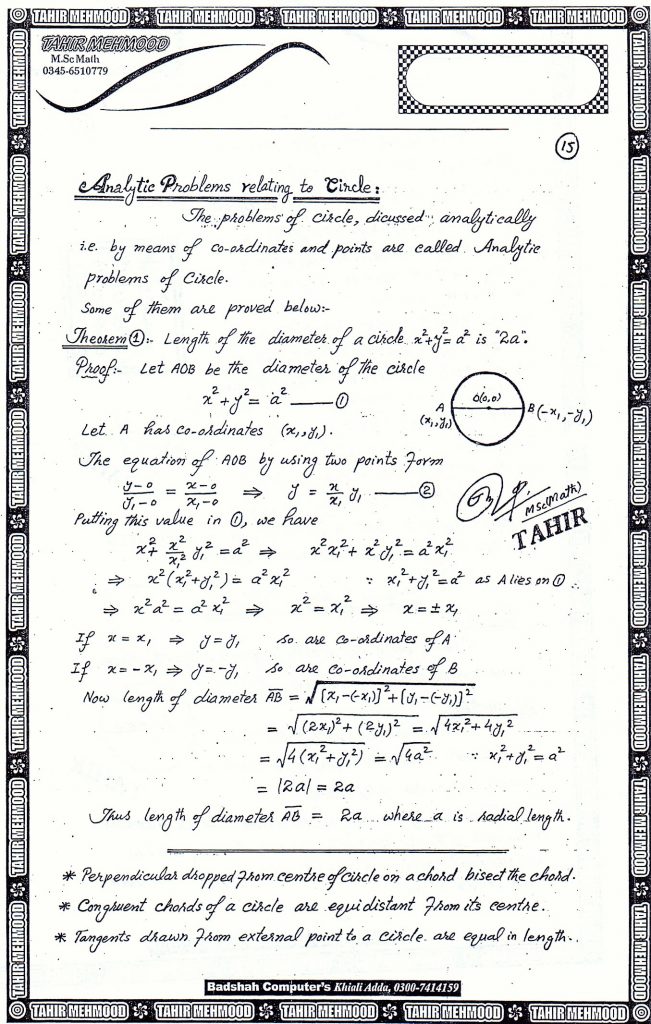 TAHIR MEHMOOD TAHIR MEHMOOD TAHIR MEHMOOD TAHIR MEHMOOD TAHIR MEHMOOD
TAHIR MEHMOOD
M.Sc Math
0345-6510779
15
Analytic Problems relating to Circle:
The problems of circle, dicussed analytically
i.e. by means of co-ordinates and points are called Analytic
problems of Circle.
Some of them are proved below:-
Theorem ①:- Length of the diameter of a circle x²+y²= a² is "2a".
Proof:- Let AOB be the diameter of the circle
x² + y² = a² —— ①
O(0,0)
A (x₁,y₁)
B (-x₁,-y₁)
Let A has co-ordinates (x₁,y₁).
The equation of AOB by using two points form
(y-0)/(y₁-0) = (x-0)/(x₁-0) ⇒ y = x/x₁ y₁ —— ②
MSc(Math)
TAHIR
Putting this value in ①, we have
x² + x²/x₁² y₁² = a² ⇒ x²x₁² + x²y₁² = a²x₁²
⇒ x²(x₁²+y₁²) = a²x₁² ∵ x₁²+y₁²=a² as A lies on ①
⇒ x²a² = a²x₁² ⇒ x² = x₁² ⇒ x = ± x₁
If x = x₁ ⇒ y = y₁ so are co-ordinates of A
If x = -x₁ ⇒ y = -y₁ so are co-ordinates of B
Now length of diameter A̅B̅ = √([x₁-(-x₁)]²+[y₁-(-y₁)]²)
= √((2x₁)²+(2y₁)²) = √(4x₁²+4y₁²)
= √(4(x₁²+y₁²)) = √(4a²) ∵ x₁²+y₁²=a²
= |2a| = 2a
Thus length of diameter A̅B̅ = 2a where a is radial length.
* Perpendicular dropped from centre of circle on a chord bisect the chord.
* Congruent chords of a circle are equidistant from its centre.
* Tangents drawn from external point to a circle are equal in length.
Badshah Computer's Khiali Adda, 0300-7414159
TAHIR MEHMOOD TAHIR MEHMOOD TAHIR MEHMOOD TAHIR MEHMOOD TAHIR MEHMOOD